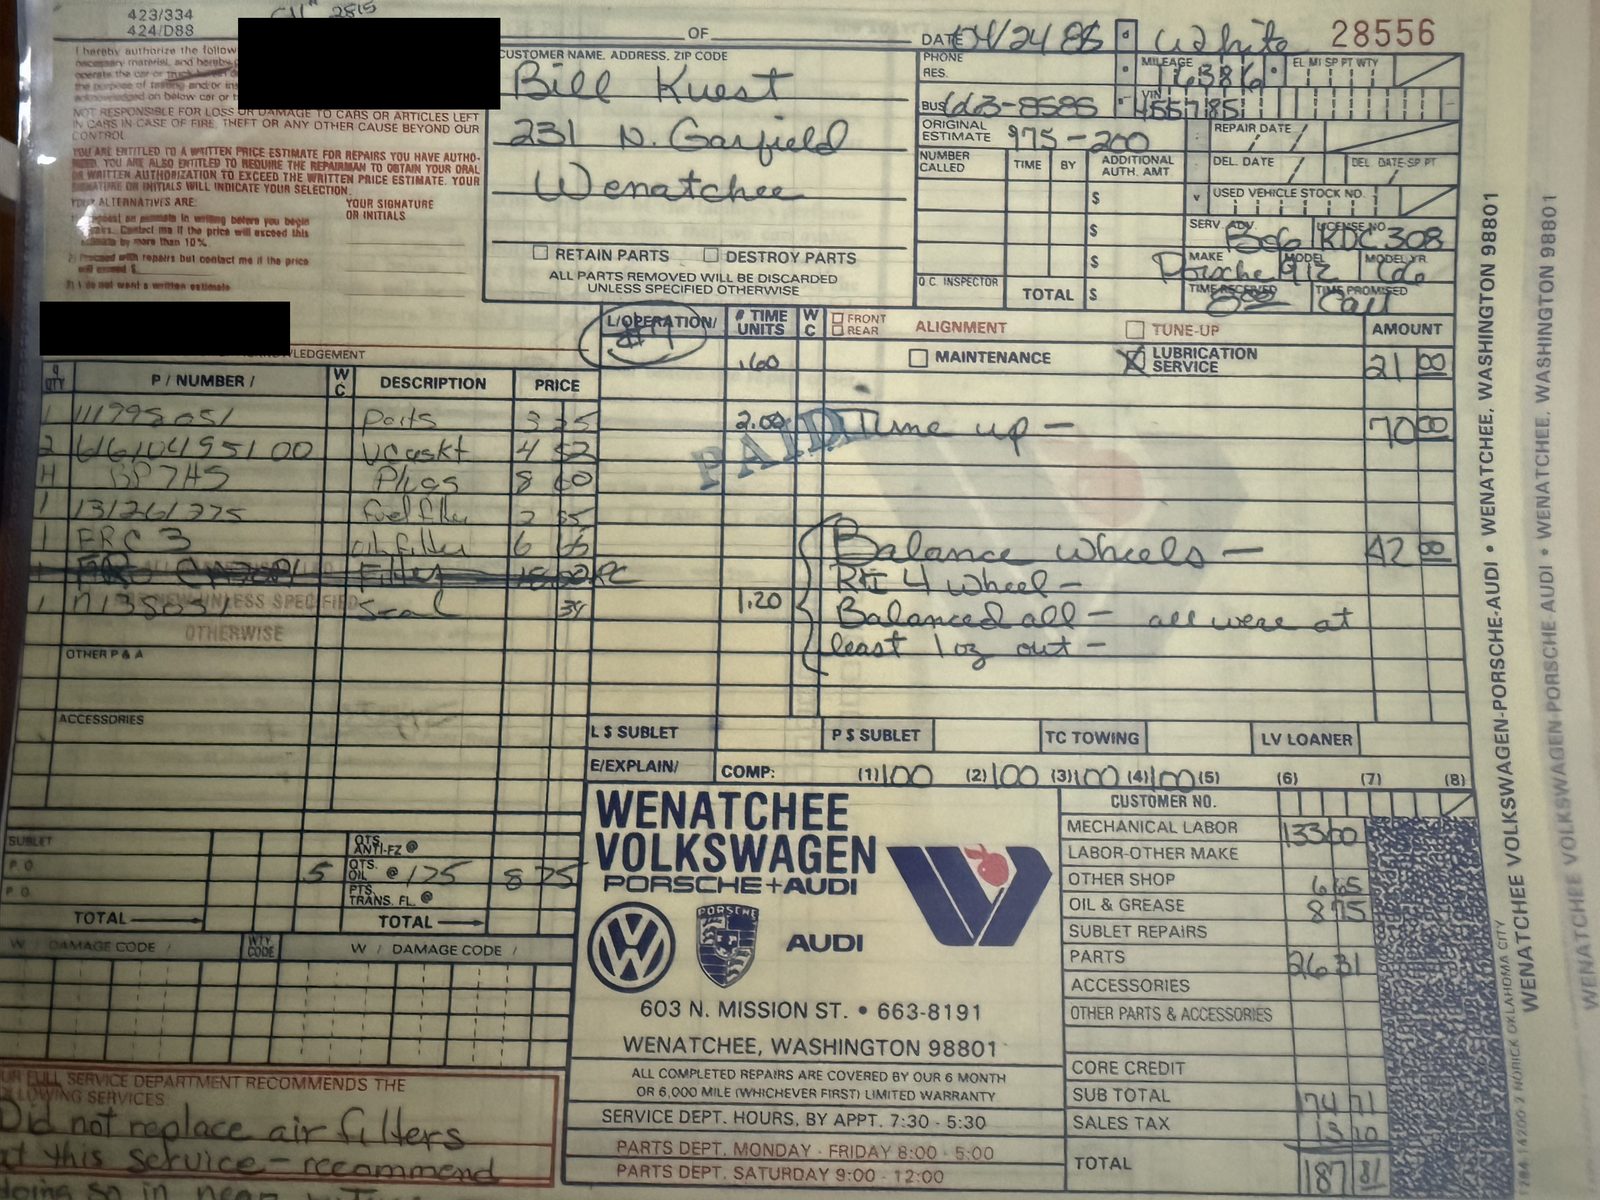 423/334
424/D88
2815
OF
DATE 04/24 85
White
28556
I hereby authorize the follow
necessary material, and hereby
operate the car or truck
the purpose of testing and/or
acknowledged on below car or
NOT RESPONSIBLE FOR LOSS OR DAMAGE TO CARS OR ARTICLES LEFT
IN CARS IN CASE OF FIRE, THEFT OR ANY OTHER CAUSE BEYOND OUR
CONTROL
YOU ARE ENTITLED TO A WRITTEN PRICE ESTIMATE FOR REPAIRS YOU HAVE AUTHO-
YOU ARE ALSO ENTITLED TO REQUIRE THE REPAIRMAN TO OBTAIN YOUR ORAL
OR WRITTEN AUTHORIZATION TO EXCEED THE WRITTEN PRICE ESTIMATE. YOUR
SIGNATURE OR INITIALS WILL INDICATE YOUR SELECTION.
YOUR ALTERNATIVES ARE:
YOUR SIGNATURE
OR INITIALS
an estimate in writing before you begin
Contact me if the price will exceed this
estimate by more than 10%.
2) Proceed with repairs but contact me if the price
will exceed $
3) I do not want a written estimate
CUSTOMER NAME, ADDRESS, ZIP CODE
Bill Kuest
231 N. Garfield
Wenatchee
RETAIN PARTS
DESTROY PARTS
ALL PARTS REMOVED WILL BE DISCARDED
UNLESS SPECIFIED OTHERWISE
PHONE
RES.
BUS 663-8585
ORIGINAL
ESTIMATE $75-200
NUMBER
CALLED
TIME
BY
ADDITIONAL
AUTH. AMT
$
$
$
Q.C. INSPECTOR
TOTAL $
MILEAGE
16386
EL MI SP PT WTY
VIN
455785
REPAIR DATE / /
DEL. DATE /
DEL DATE-SP PT
V USED VEHICLE STOCK NO.
SERV. ADV. Bob
LICENSE NO. KDC 308
MAKE Porsche
MODEL 912
MODEL YR.
TIME RECEIVED 8:00
TIME PROMISED Call
L/OPERATION/
#1
# TIME
UNITS
W
C
FRONT
REAR
ALIGNMENT
TUNE-UP
AMOUNT
.60
MAINTENANCE
X LUBRICATION
SERVICE
21 00
2.00
Tune up -
70 00
PAID
Balance wheels -
42 00
R&I 4 wheel -
1.20
Balanced all - all were at
least 1 oz out -
L $ SUBLET
P $ SUBLET
TC TOWING
LV LOANER
E/EXPLAIN/
COMP:
(1) 100
(2) 100
(3) 100
(4) 100
(5)
(6)
(7)
(8)
QTY
P / NUMBER /
W
C
DESCRIPTION
PRICE
2 61610495100 4 52
4 BP7HS Plugs 8 60
1 131261275 fuel filter 2 55
1 FRC 3 air filter 6 65
Filter RC
1 N138051 Seal 34
UNLESS SPECIFIED
OTHERWISE
OTHER P & A
ACCESSORIES
SUBLET
P O
P O
TOTAL
QTS.
ANTI-FZ @
5 QTS.
OIL @ 1 75 8 75
PTS.
TRANS. FL. @
TOTAL
W / DAMAGE CODE /
WTY
CODE
W / DAMAGE CODE /
FULL SERVICE DEPARTMENT RECOMMENDS THE
FOLLOWING SERVICES:
Did not replace air filters
at this service - recommend
doing so in near
WENATCHEE
VOLKSWAGEN
PORSCHE+AUDI
PORSCHE
AUDI
603 N. MISSION ST. • 663-8191
WENATCHEE, WASHINGTON 98801
ALL COMPLETED REPAIRS ARE COVERED BY OUR 6 MONTH
OR 6,000 MILE (WHICHEVER FIRST) LIMITED WARRANTY
SERVICE DEPT. HOURS, BY APPT. 7:30 - 5:30
PARTS DEPT. MONDAY - FRIDAY 8:00 - 5:00
PARTS DEPT. SATURDAY 9:00 - 12:00
CUSTOMER NO.
MECHANICAL LABOR 133 00
LABOR-OTHER MAKE
OTHER SHOP 6 65
OIL & GREASE 8 75
SUBLET REPAIRS
PARTS 26 31
ACCESSORIES
OTHER PARTS & ACCESSORIES
CORE CREDIT
SUB TOTAL 174 71
SALES TAX 13 10
TOTAL 187 81
WENATCHEE VOLKSWAGEN-PORSCHE-AUDI • WENATCHEE, WASHINGTON 98801
WENATCHEE VOLKSWAGEN-PORSCHE AUDI • WENATCHEE, WASHINGTON 98801
NORICK OKLAHOMA CITY